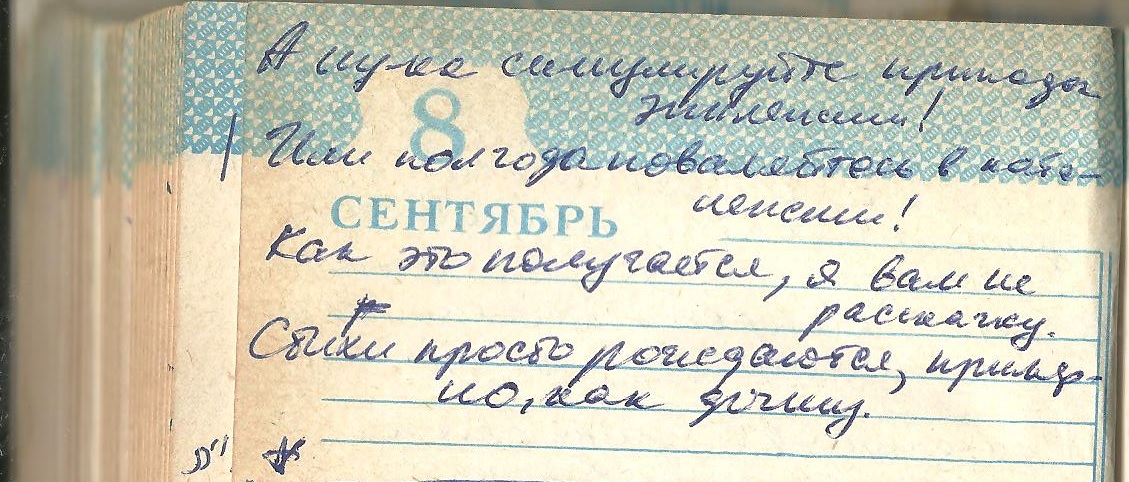 А ну-ка симулируйте припадок
эпилепсии!
8
Или полгода поваляйтесь в ката-
лепсии!
СЕНТЯБРЬ
Как это получается, я вам не
расскажу.
Стихи просто рождаются, пример-
но, как